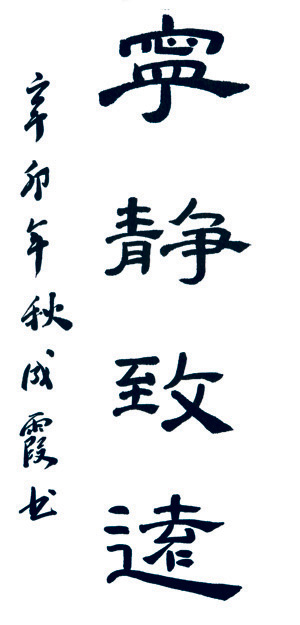 寧静致遠
辛卯年秋成霞书